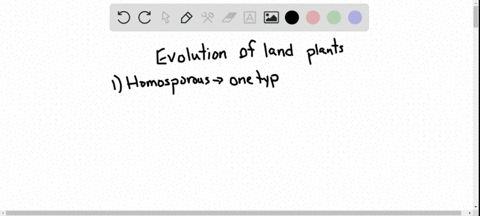 Evolution of land plants
1) Homosporous → one typ